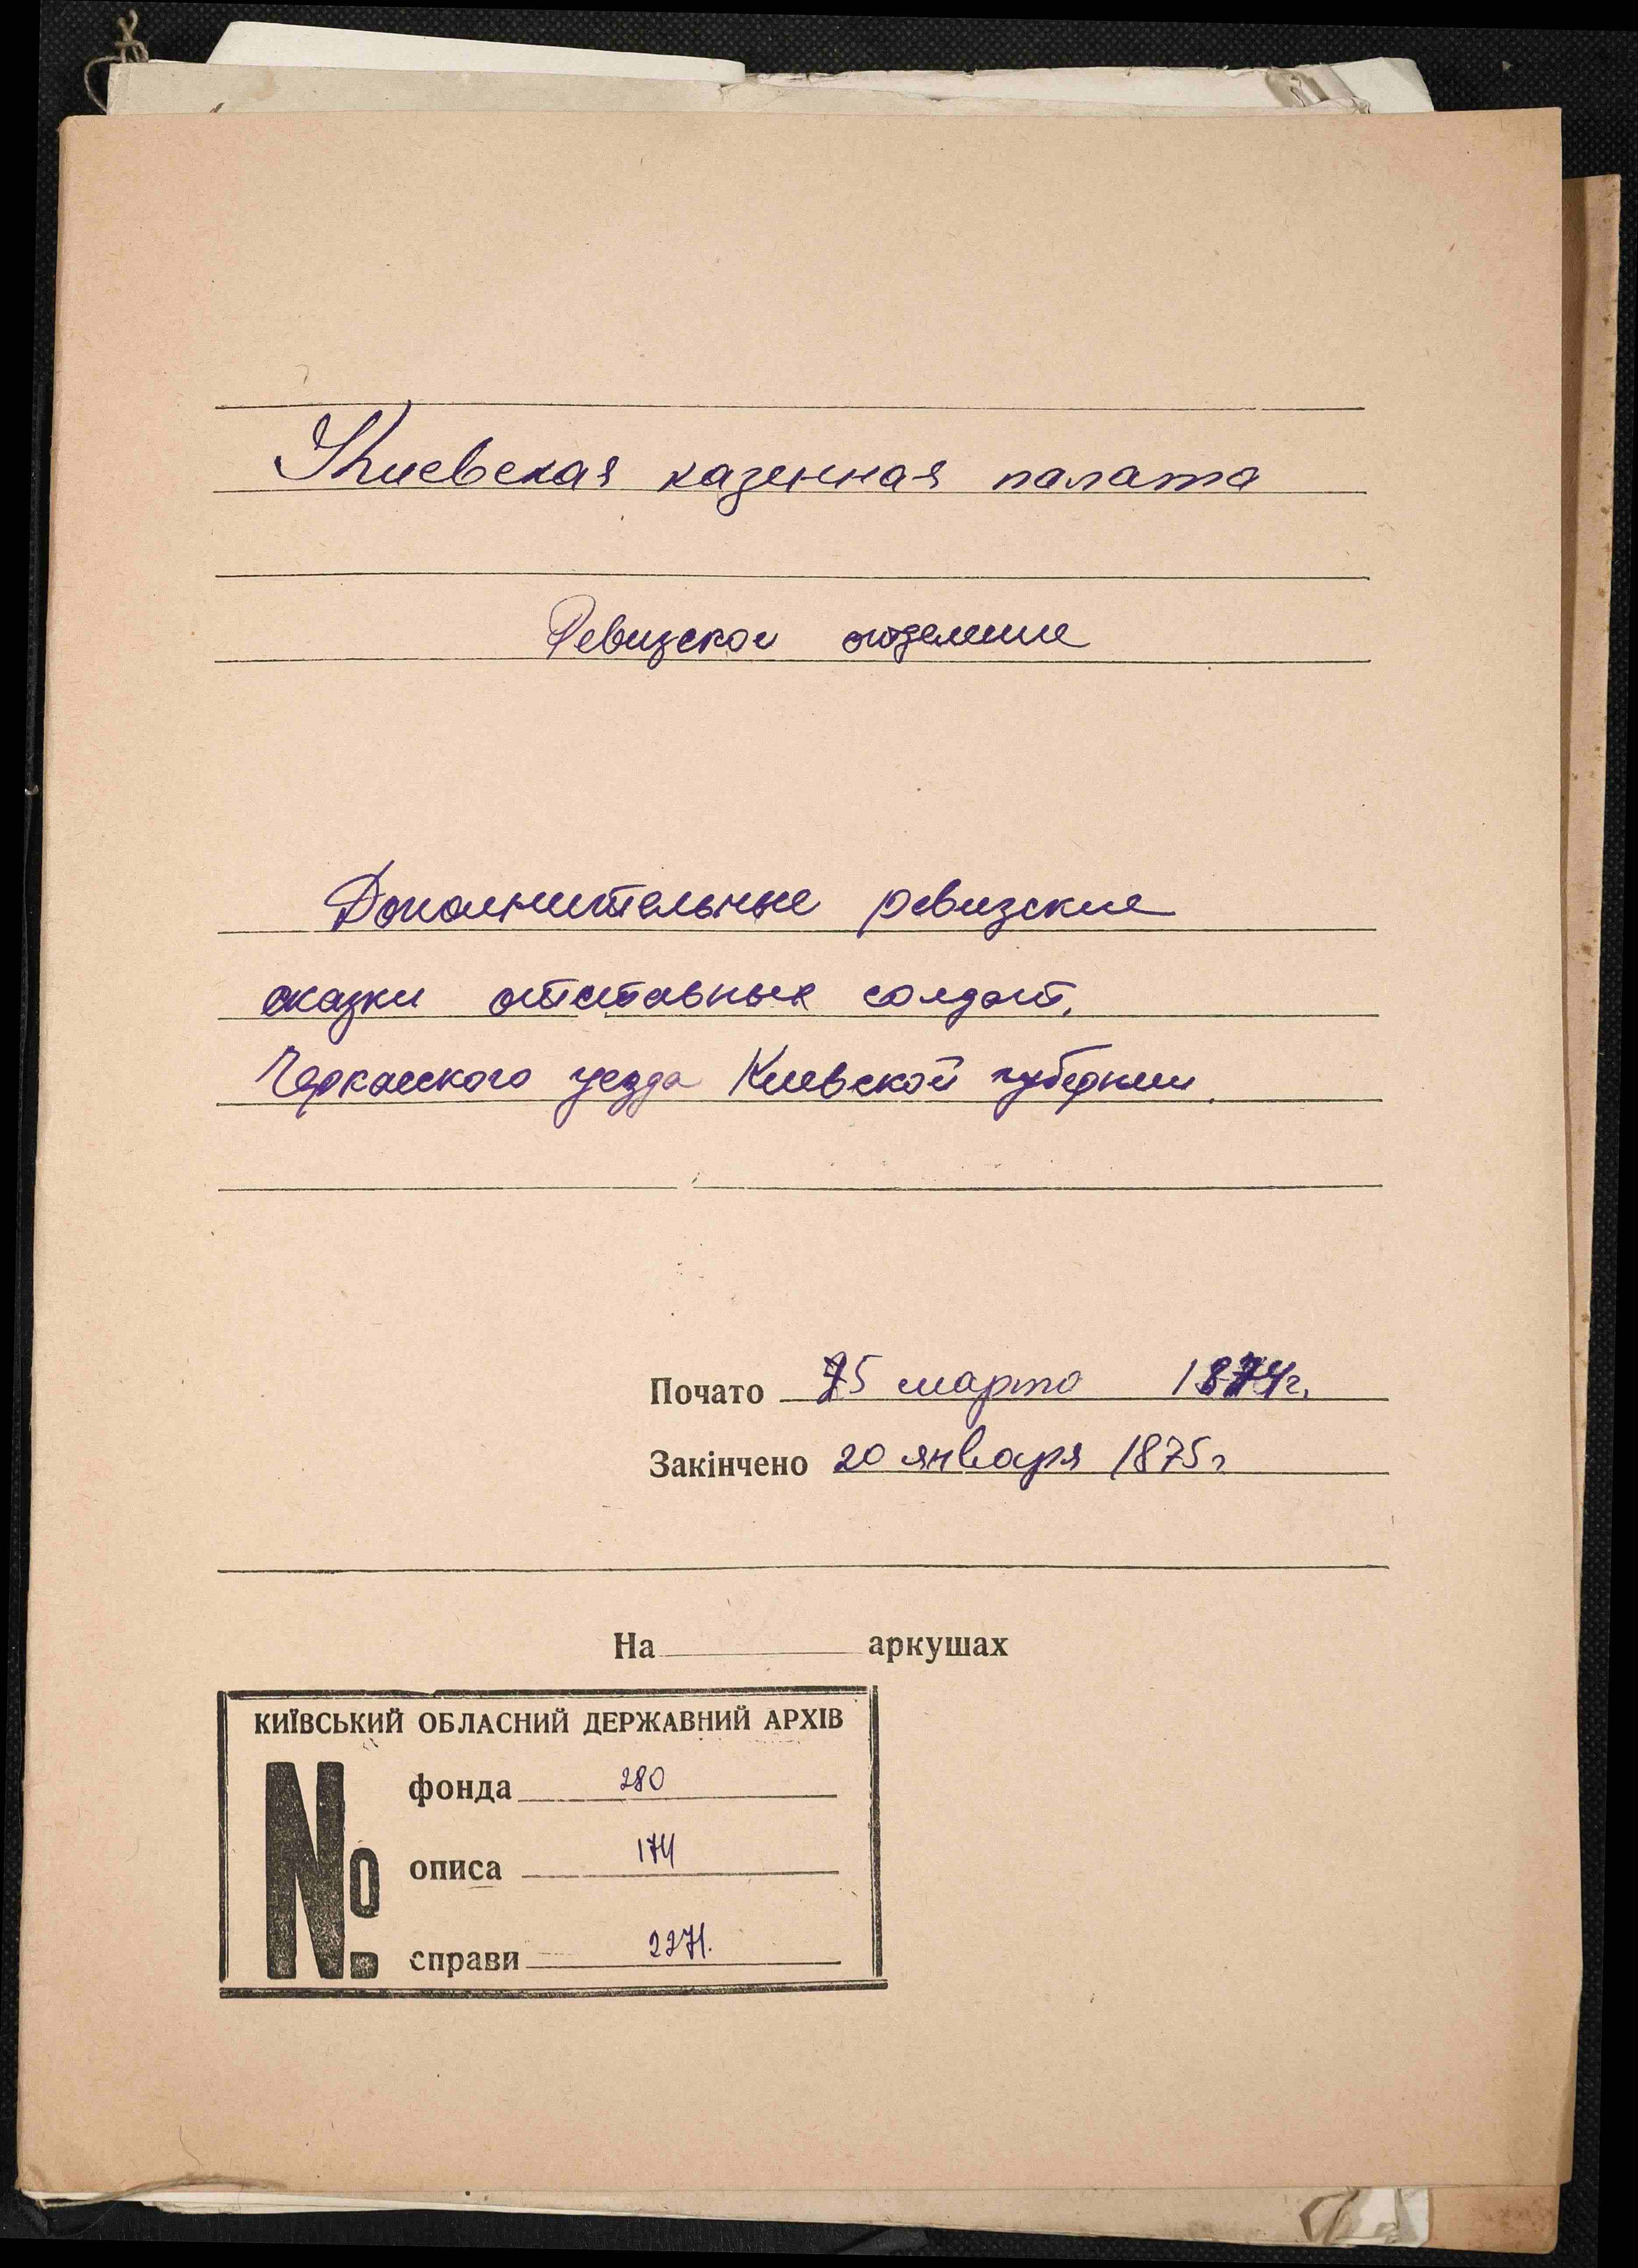 Киевская казенная палата
Ревизское отделение
Дополнительные ревизские
сказки отставных солдат,
Черкасского уезда Киевской губернии.
Почато 15 марта 1874г.
Закінчено 20 января 1875г
На аркушах
КИЇВСЬКИЙ ОБЛАСНИЙ ДЕРЖАВНИЙ АРХІВ
№ фонда 280
описа 174
справи 2271.